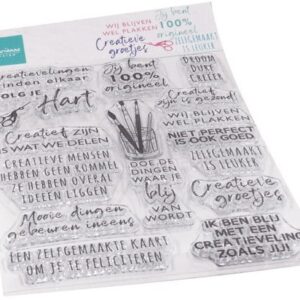 WIJ BLIJVEN
WEL PLAKKEN
Creatieve
groetjes
Jij bent
100%
origineel
ZELFGEMAAKT
IS LEUKER
CREATIEVELINGEN
VINDEN ELKAAR
VOLG JE
Hart
Jij bent
100%
origineel
DROOM
DURF
CREËER
Creatief
zijn is gezond!
WIJ BLIJVEN
WEL PLAKKEN
NIET PERFECT
OOK GOED
ZELFGEMAAKT
IS LEUKER
Creatief ZIJN
IS WAT WE DELEN
CREATIEVE MENSEN
HEBBEN GEEN ROMMEL
ZE HEBBEN OVERAL
IDEEËN LIGGEN
DOE DE
DINGEN
WAAR JE
blij
VAN
WORDT
Creatieve
groetjes
Mooie dingen
gebeuren ineens
EEN ZELFGEMAAKTE KAART
OM JE TE FELICITEREN
IK BEN BLIJ
MET EEN
CREATIEVELING
ZOALS JIJ!